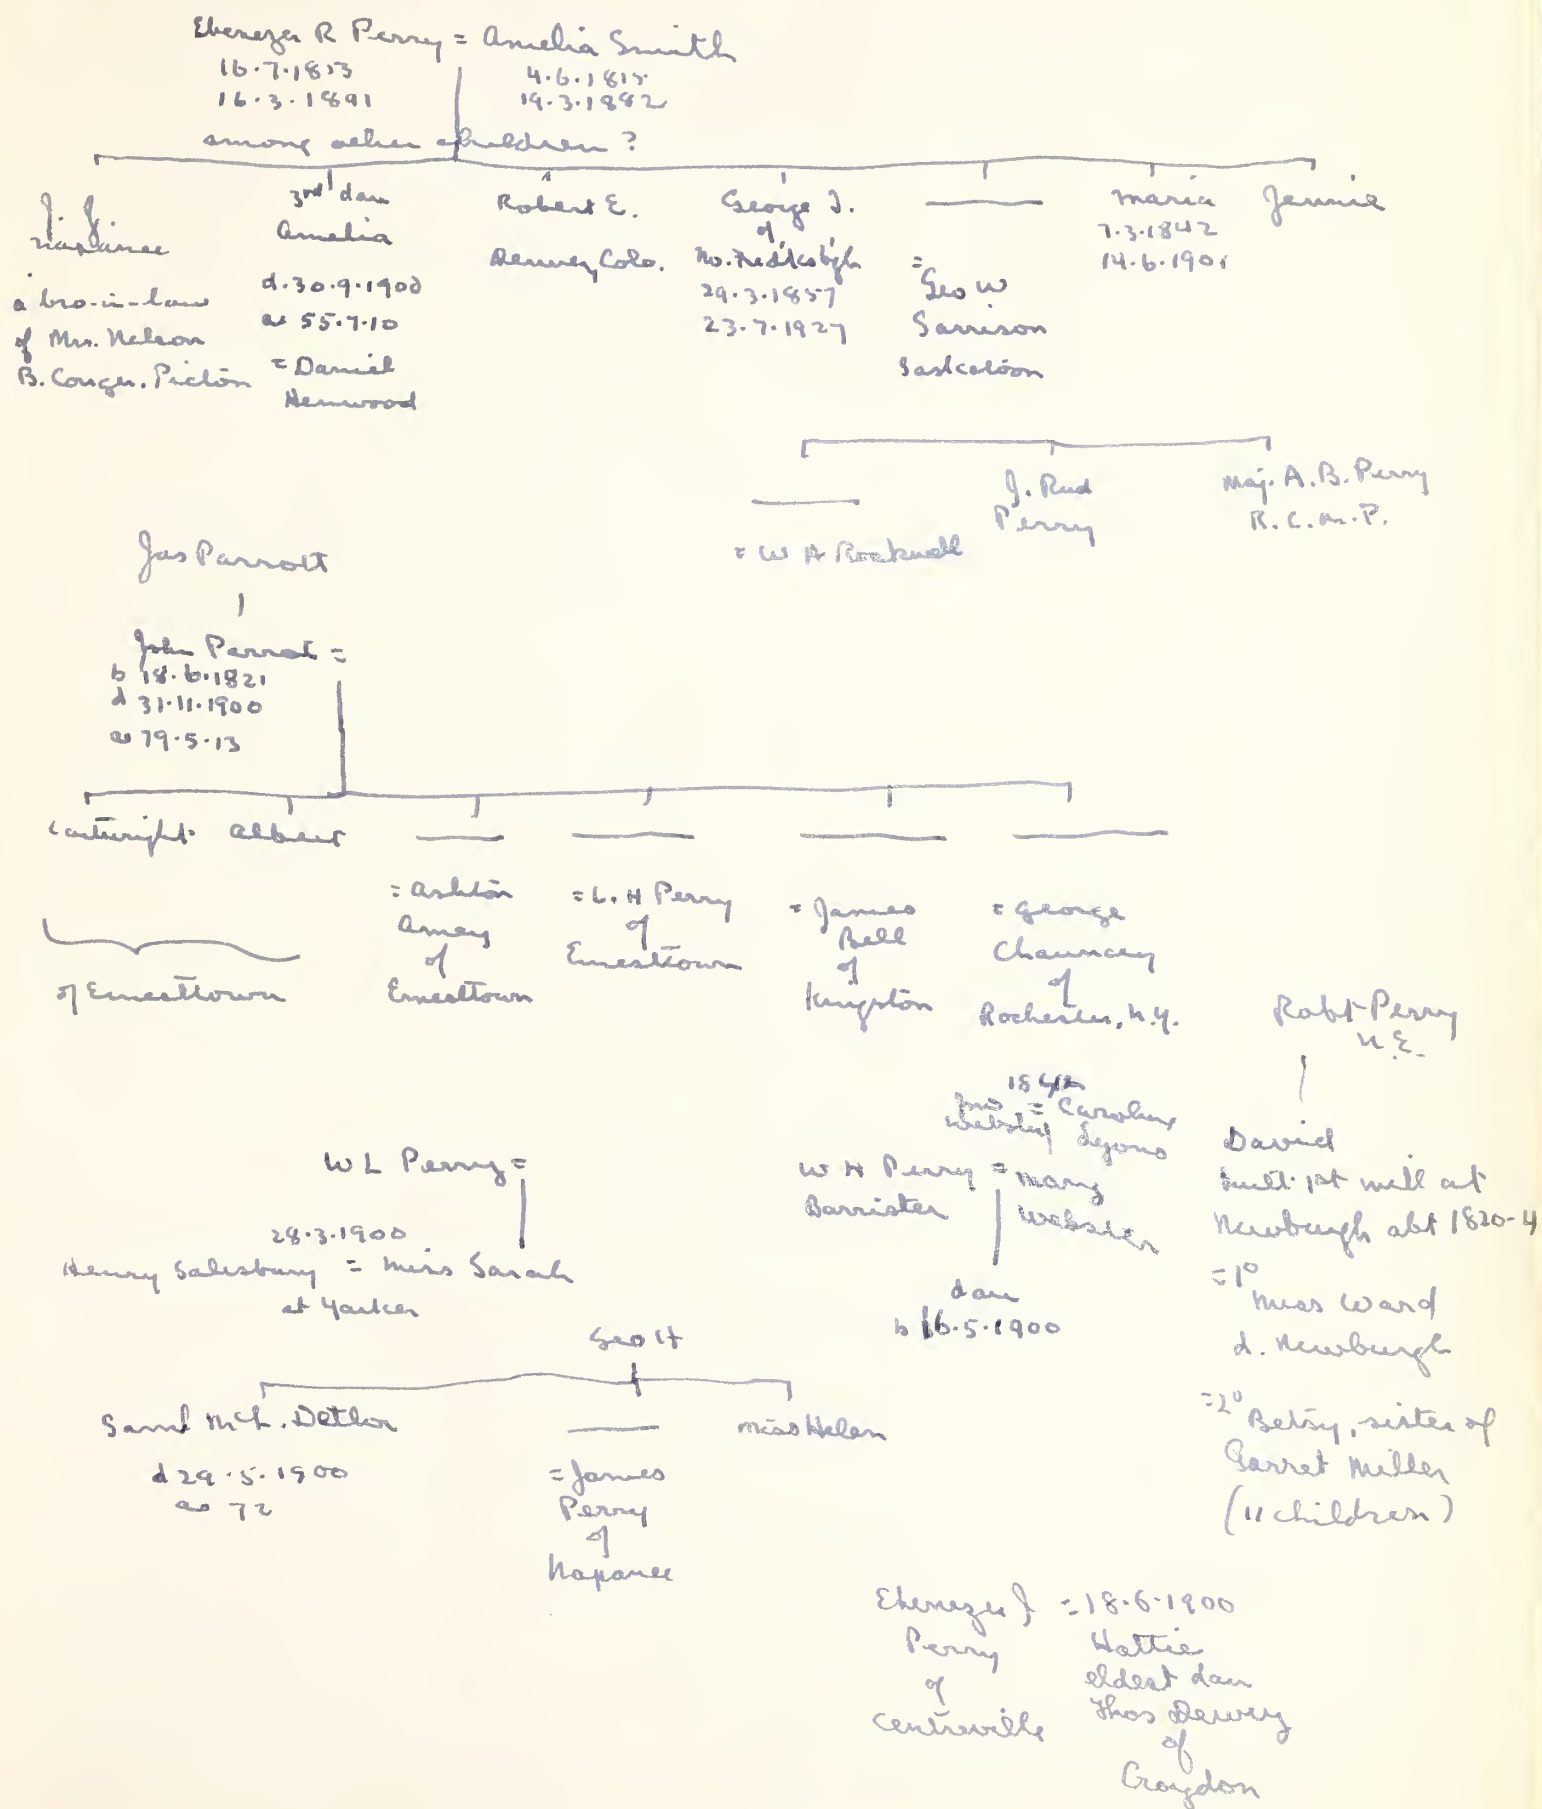 Ebenezer R Perry = Amelia Smith
16.7.1813 4.6.1815
16.3.1891 19.3.1882
among other children?
J. J.
Napanee
a bro-in-law
of Mrs. Nelson
B. Conger. Picton
3rd dau
Amelia
d.30.9.1900
ae 55.7.10
= Daniel
Henwood
Robert E.
Denver, Colo.
George J.
of
No. Fredksbgh
29.3.1857
23.7.1927
=
Geo W
Garrison
Saskatoon
Maria
7.3.1842
14.6.1901
Jennie
= W A Rockwell
J. Rud
Perry
Maj. A. B. Perry
R. C. M. P.
Jas Parrott
John Parrot =
b 18.6.1821
d 31.11.1900
ae 79.5.13
Cartwright Albert
of Ernesttown
= Ashton
Amey
of
Ernesttown
= L. H Perry
of
Ernesttown
= James
Bell
of
Kingston
= George
Chauncey
of
Rochester, N.Y.
Robt Perry
U.E.
David
built 1st mill at
Newburgh abt 1820-4
=1°
Miss Ward
d. Newburgh
=2° Betsy, sister of
Garret Miller
(11 children)
W L Perry =
28.3.1900
Henry Salesbury = Miss Sarah
at Yarker
Jno = Caroline
Webster Lyons
W H Perry = Mary
Barrister Webster
dau
b 16.5.1900
Geo H
Saml McL. Detlor
d 29.5.1900
ae 72
= James
Perry
of
Napanee
Miss Helen
Ebenezer J = 18.6.1900
Perry Hattie
of eldest dau
Centreville Thos Dewey
of
Croydon